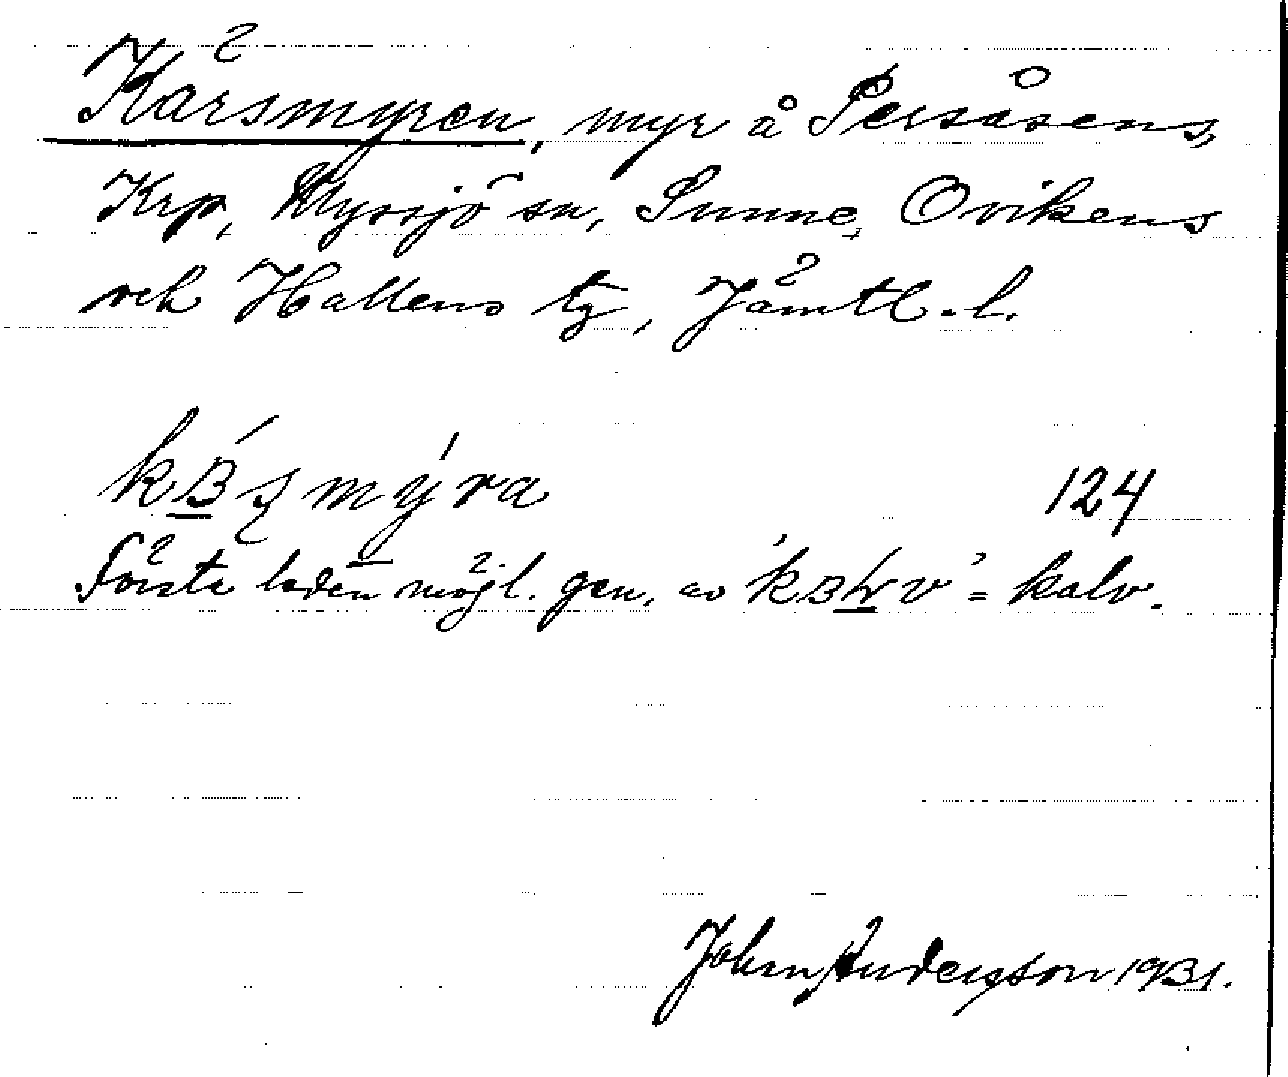 Kärsmyren, myr å Persåsens,
Krp, Myssjö sn, Sunne, Ovikens
och Hallens tg, Jämtl. l.
124
Första leden möjl. gen. av = kalv.
John Andersson 1931.